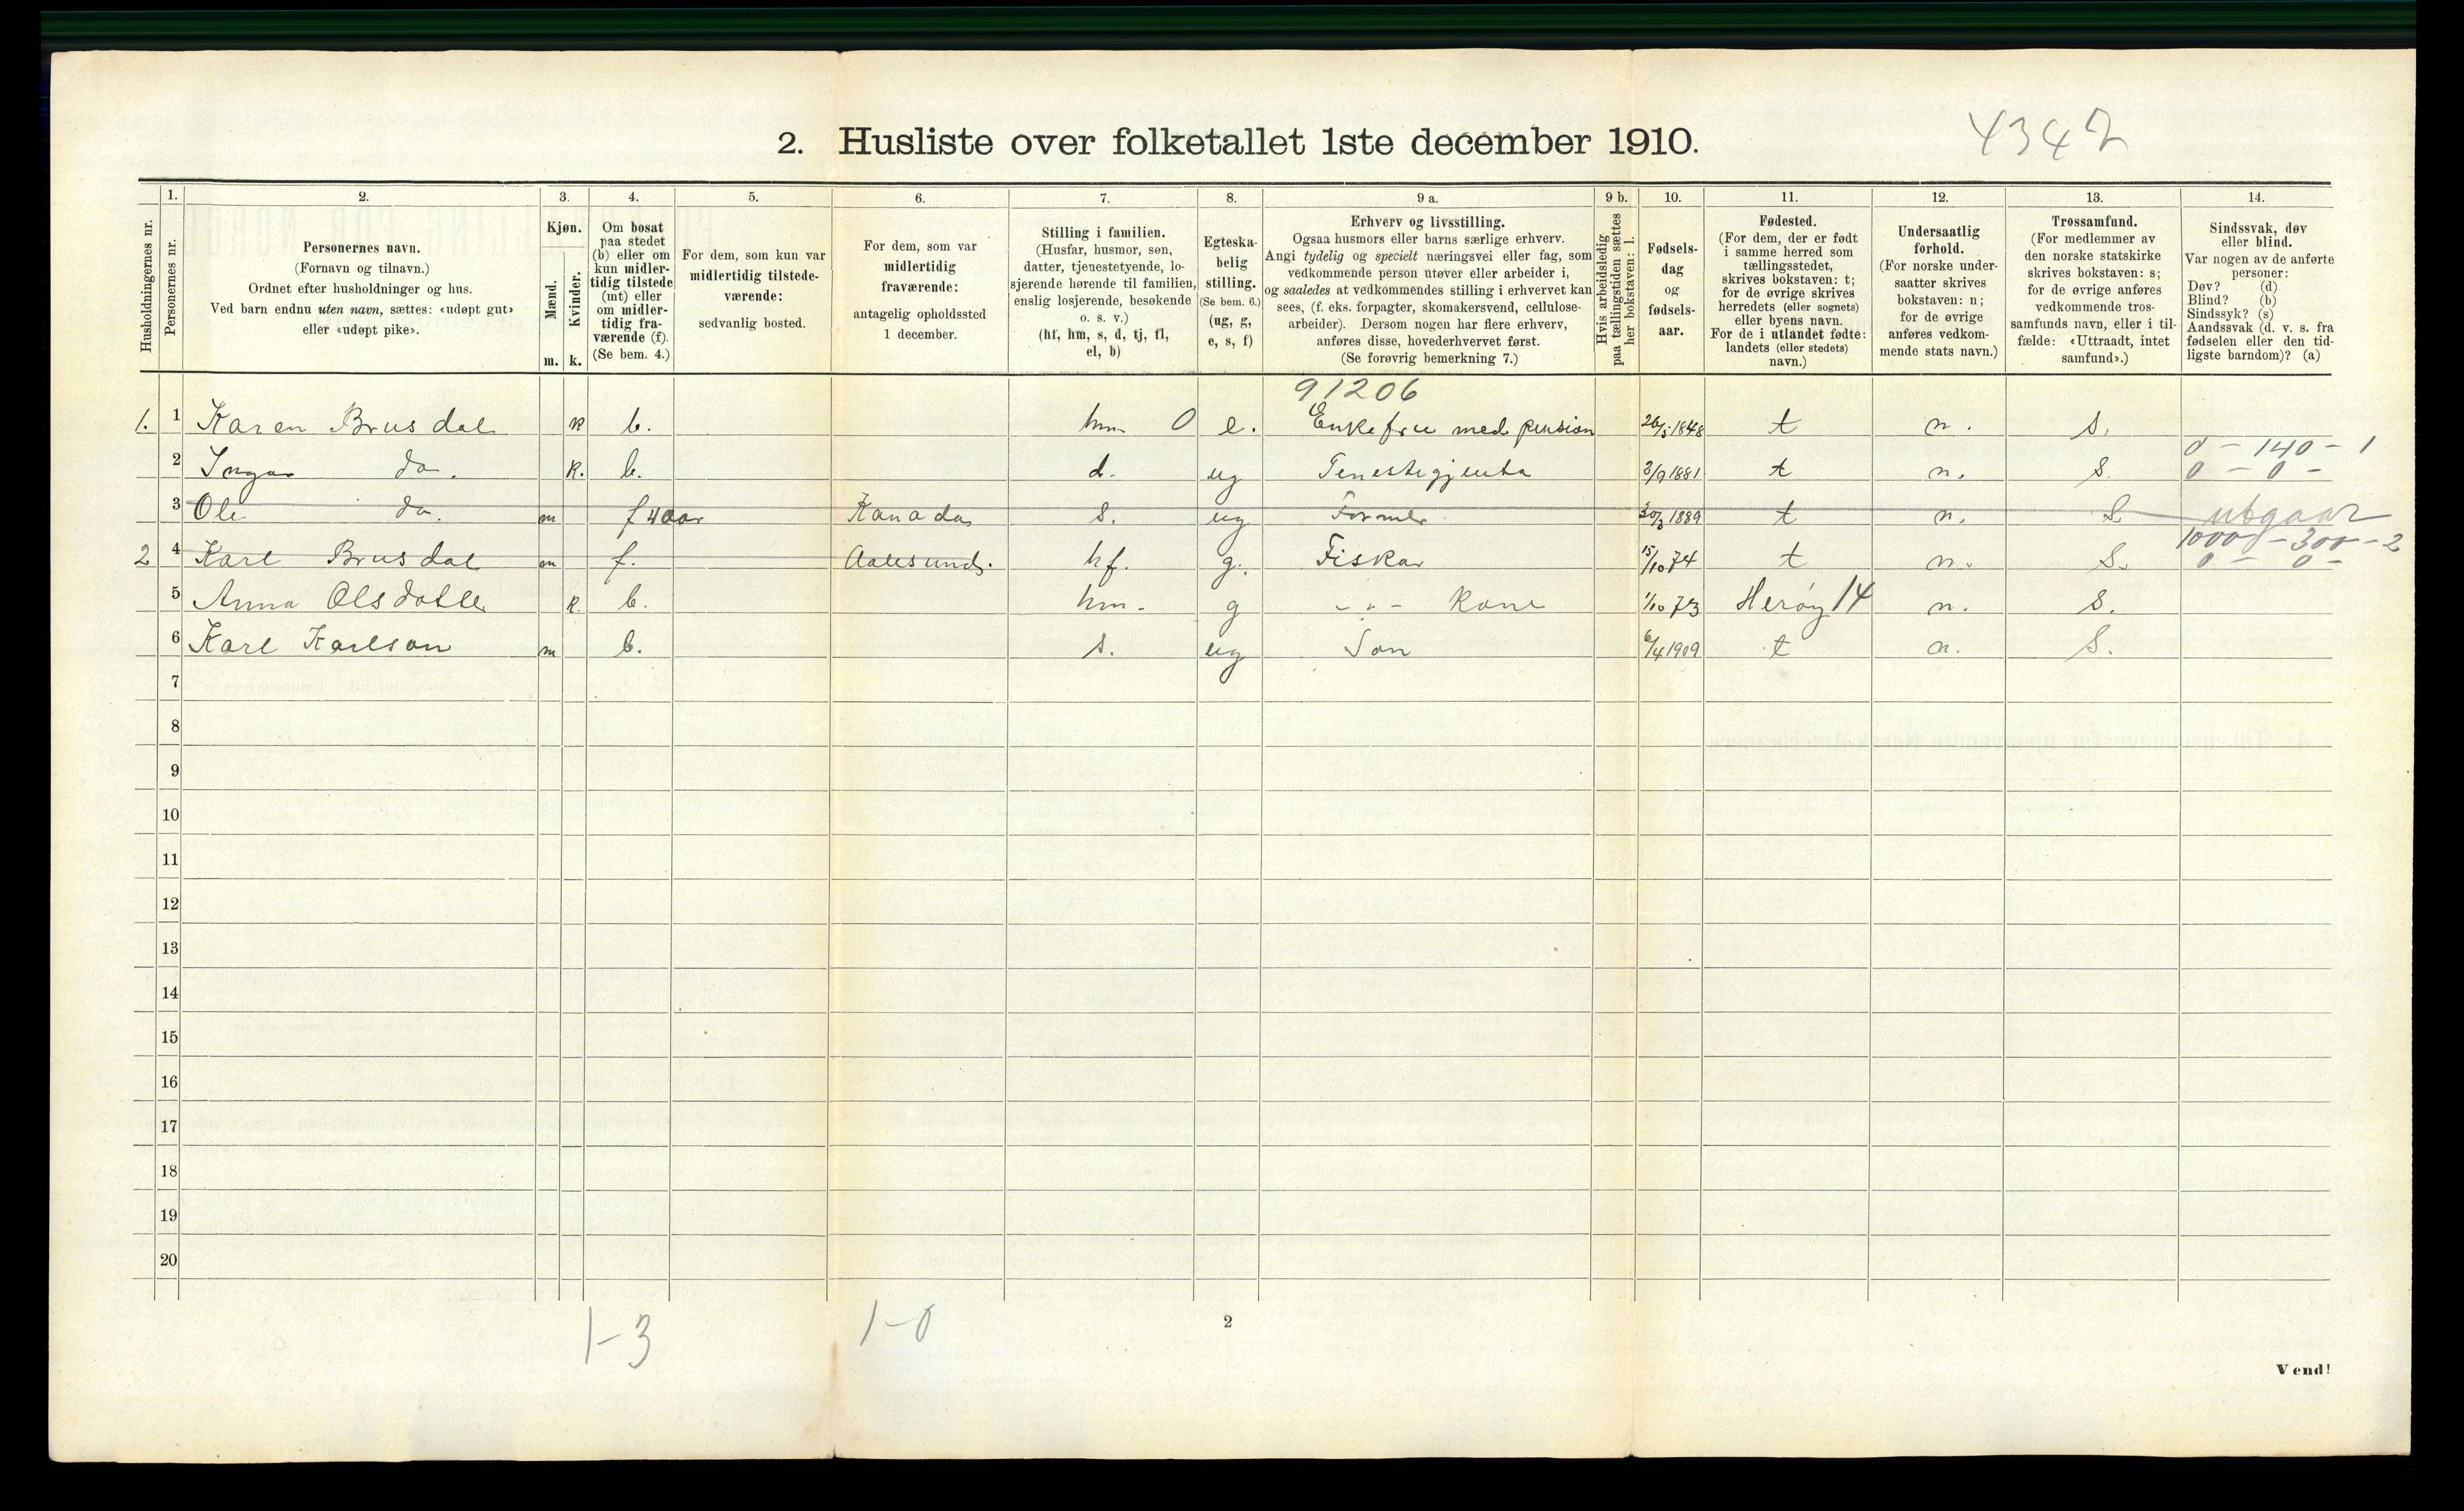 4342
2. Husliste over folketallet 1ste december 1910.
Husholdningernes nr.
1. Personernes nr.
2. Personernes navn. (Fornavn og tilnavn.) Ordnet efter husholdninger og hus. Ved barn endnu uten navn, sættes: «udøpt gut» eller «udøpt pike».
3. Kjøn. Mænd. m. Kvinder. k.
4. Om bosat paa stedet (b) eller om kun midlertidig tilstede (mt) eller om midlertidig fraværende (f). (Se bem. 4.)
5. For dem, som kun var midlertidig tilstedeværende: sedvanlig bosted.
6. For dem, som var midlertidig fraværende: antagelig opholdssted 1 december.
7. Stilling i familien. (Husfar, husmor, søn, datter, tjenestetyende, losjerende hørende til familien, enslig losjerende, besøkende o. s. v.) (hf, hm, s, d, tj, fl, el, b)
8. Egteskabelig stilling. (Se bem. 6.) (ug, g, e, s, f)
9 a. Erhverv og livsstilling. Ogsaa husmors eller barns særlige erhverv. Angi tydelig og specielt næringsvei eller fag, som vedkommende person utøver eller arbeider i, og saaledes at vedkommendes stilling i erhvervet kan sees, (f. eks. forpagter, skomakersvend, cellulosearbeider). Dersom nogen har flere erhverv, anføres disse, hovederhvervet først. (Se forøvrig bemerkning 7.)
9 b. Hvis arbeidsledig paa tællingstiden sættes her bokstaven: l.
10. Fødselsdag og fødselsaar.
11. Fødested. (For dem, der er født i samme herred som tællingsstedet, skrives bokstaven: t; for de øvrige skrives herredets (eller sognets) eller byens navn. For de i utlandet fødte: landets (eller stedets) navn.)
12. Undersaatlig forhold. (For norske undersaatter skrives bokstaven: n; for de øvrige anføres vedkommende stats navn.)
13. Trossamfund. (For medlemmer av den norske statskirke skrives bokstaven: s; for de øvrige anføres vedkommende trossamfunds navn, eller i tilfælde: «Uttraadt, intet samfund».)
14. Sindssvak, døv eller blind. Var nogen av de anførte personer: Døv? (d) Blind? (b) Sindssyk? (s) Aandssvak (d. v. s. fra fødselen eller den tidligste barndom)? (a)
91206
1. 1 Karen Brusdal k b. hm 0 e. Enkefru med pension 26/5 1848 t n. s.
0 - 140 - 1
2 Inga do. k. b. d. ug Tenestegjenta 3/9 1881 t n. s. 0 - 0 -
3 Ole do. m f 4 aar Kanada s. ug Farmer 30/3 1889 t n. s. utgaar
10000 - 300 - 2
2 4 Karl Brusdal m f. Aalesund. hf. g. Fiskar 15/10 74 t n. s. 0 - 0 -
5 Anna Olsdatter k. b. hm. g -"- Kone 1/10 73 Herøy 14 n. s.
6 Karl Karlson m b. s. ug Son 6/4 1909 t n. s.
7
8
9
10
11
12
13
14
15
16
17
18
19
20
1-3 1-0
2
Vend!